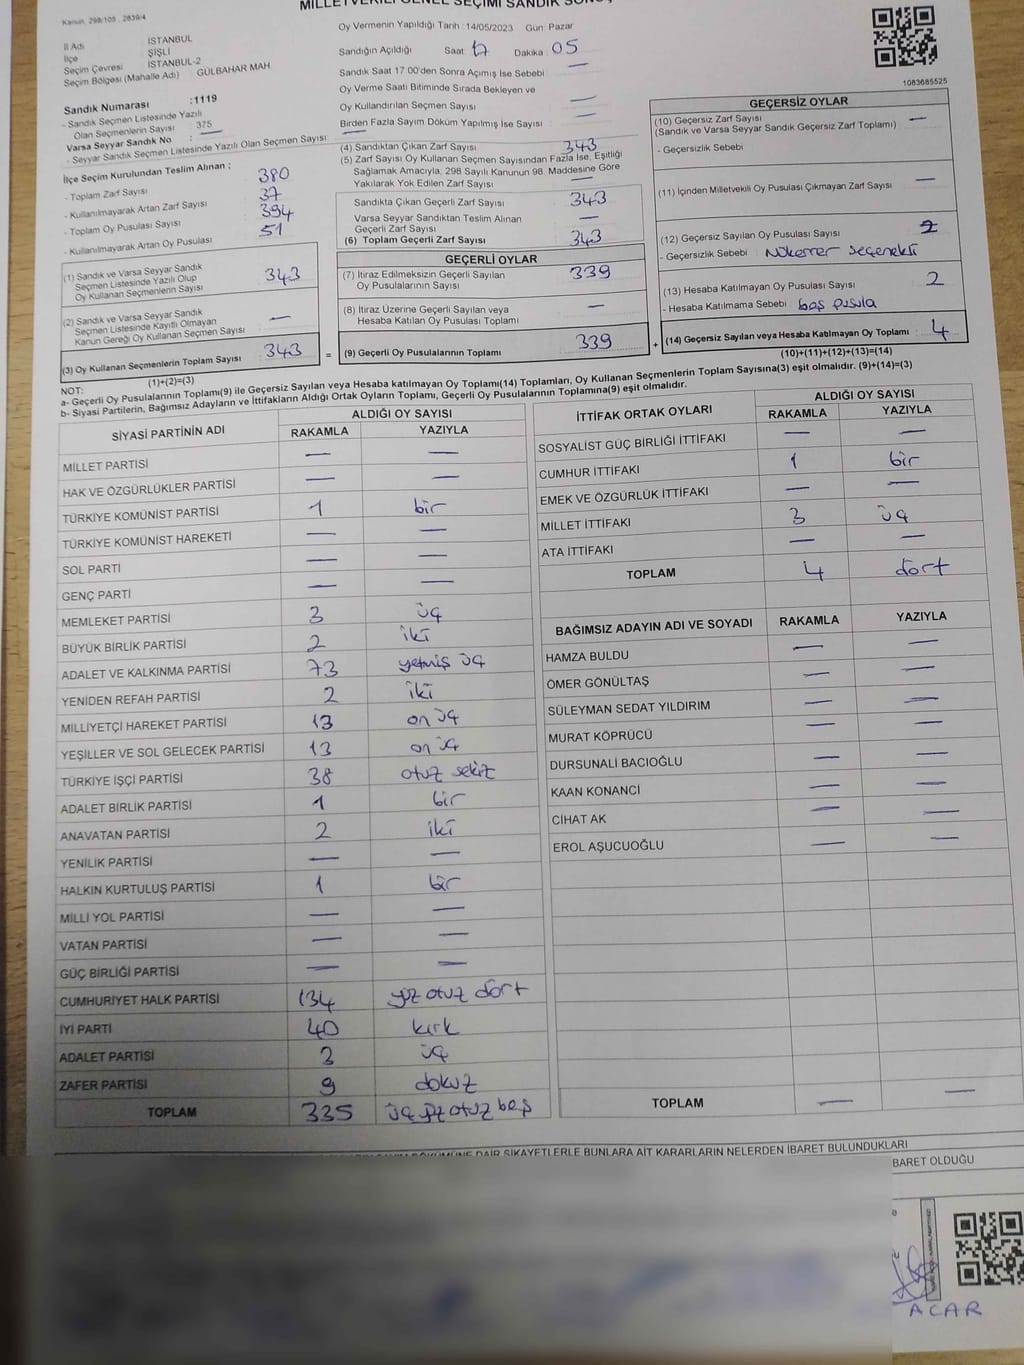 MİLLETVEKİLİ GENEL SEÇİMİ SANDIK
Kanun: 298/105 , 2839/4
İl Adı İSTANBUL
İlçe ŞİŞLİ
Seçim Çevresi İSTANBUL-2
Seçim Bölgesi (Mahalle Adı) GÜLBAHAR MAH.
Sandık Numarası :1119
- Sandık Seçmen Listesinde Yazılı
Olan Seçmenlerin Sayısı : 375
Varsa Seyyar Sandık No : —
- Seyyar Sandık Seçmen Listesinde Yazılı Olan Seçmen Sayısı : —
İlçe Seçim Kurulundan Teslim Alınan ;
- Toplam Zarf Sayısı 380
- Kullanılmayarak Artan Zarf Sayısı 37
- Toplam Oy Pusulası Sayısı 394
- Kullanılmayarak Artan Oy Pusulası 51
(1) Sandık ve Varsa Seyyar Sandık
Seçmen Listesinde Yazılı Olup
Oy Kullanan Seçmenlerin Sayısı : 343
(2) Sandık ve Varsa Seyyar Sandık
Seçmen Listesinde Kayıtlı Olmayan
Kanun Gereği Oy Kullanan Seçmen Sayısı : —
(3) Oy Kullanan Seçmenlerin Toplam Sayısı : 343
(1)+(2)=(3)
Oy Vermenin Yapıldığı Tarih : 14/05/2023 Gün: Pazar
Sandığın Açıldığı Saat 17 Dakika 05
Sandık Saat 17 00'den Sonra Açımış İse Sebebi : —
Oy Verme Saati Bitiminde Sırada Bekleyen ve
Oy Kullandırılan Seçmen Sayısı : —
Birden Fazla Sayım Döküm Yapılmış İse Sayısı : —
(4) Sandıktan Çıkan Zarf Sayısı : 343
(5) Zarf Sayısı Oy Kullanan Seçmen Sayısından Fazla İse, Eşitliği
Sağlamak Amacıyla, 298 Sayılı Kanunun 98. Maddesine Göre
Yakılarak Yok Edilen Zarf Sayısı : —
Sandıkta Çıkan Geçerli Zarf Sayısı : 343
Varsa Seyyar Sandıktan Teslim Alınan
Geçerli Zarf Sayısı : —
(6) Toplam Geçerli Zarf Sayısı : 343
GEÇERLİ OYLAR
(7) İtiraz Edilmeksizin Geçerli Sayılan
Oy Pusulalarının Sayısı : 339
(8) İtiraz Üzerine Geçerli Sayılan veya
Hesaba Katılan Oy Pusulası Toplamı : —
= (9) Geçerli Oy Pusulalarının Toplamı : 339 +
1083685525
GEÇERSİZ OYLAR
(10) Geçersiz Zarf Sayısı : —
(Sandık ve Varsa Seyyar Sandık Geçersiz Zarf Toplamı)
- Geçersizlik Sebebi
(11) İçinden Milletvekili Oy Pusulası Çıkmayan Zarf Sayısı : —
(12) Geçersiz Sayılan Oy Pusulası Sayısı : 2
- Geçersizlik Sebebi : Mükerrer seçenekti
(13) Hesaba Katılmayan Oy Pusulası Sayısı : 2
- Hesaba Katılmama Sebebi : boş pusula
(14) Geçersiz Sayılan veya Hesaba Katılmayan Oy Toplamı : 4
(10)+(11)+(12)+(13)=(14)
NOT:
a- Geçerli Oy Pusulalarının Toplamı(9) ile Geçersiz Sayılan veya Hesaba katılmayan Oy Toplamı(14) Toplamları, Oy Kullanan Seçmenlerin Toplam Sayısına(3) eşit olmalıdır. (9)+(14)=(3)
b- Siyasi Partilerin, Bağımsız Adayların ve İttifakların Aldığı Ortak Oyların Toplamı, Geçerli Oy Pusulalarının Toplamına(9) eşit olmalıdır.
SİYASİ PARTİNİN ADI ALDIĞI OY SAYISI
RAKAMLA YAZIYLA
MİLLET PARTİSİ — —
HAK VE ÖZGÜRLÜKLER PARTİSİ — —
TÜRKİYE KOMÜNİST PARTİSİ 1 bir
TÜRKİYE KOMÜNİST HAREKETİ — —
SOL PARTİ — —
GENÇ PARTİ — —
MEMLEKET PARTİSİ 3 üç
BÜYÜK BİRLİK PARTİSİ 2 iki
ADALET VE KALKINMA PARTİSİ 73 yetmiş üç
YENİDEN REFAH PARTİSİ 2 iki
MİLLİYETÇİ HAREKET PARTİSİ 13 on üç
YEŞİLLER VE SOL GELECEK PARTİSİ 13 on üç
TÜRKİYE İŞÇİ PARTİSİ 38 otuz sekiz
ADALET BİRLİK PARTİSİ 1 bir
ANAVATAN PARTİSİ 2 iki
YENİLİK PARTİSİ — —
HALKIN KURTULUŞ PARTİSİ 1 bir
MİLLİ YOL PARTİSİ — —
VATAN PARTİSİ — —
GÜÇ BİRLİĞİ PARTİSİ — —
CUMHURİYET HALK PARTİSİ 134 yüz otuz dört
İYİ PARTİ 40 kırk
ADALET PARTİSİ 3 üç
ZAFER PARTİSİ 9 dokuz
TOPLAM 335 üç yüz otuz beş
İTTİFAK ORTAK OYLARI ALDIĞI OY SAYISI
RAKAMLA YAZIYLA
SOSYALİST GÜÇ BİRLİĞİ İTTİFAKI — —
CUMHUR İTTİFAKI 1 bir
EMEK VE ÖZGÜRLÜK İTTİFAKI — —
MİLLET İTTİFAKI 3 üç
ATA İTTİFAKI — —
TOPLAM 4 dört
BAĞIMSIZ ADAYIN ADI VE SOYADI RAKAMLA YAZIYLA
HAMZA BULDU — —
ÖMER GÖNÜLTAŞ — —
SÜLEYMAN SEDAT YILDIRIM — —
MURAT KÖPRÜCÜ — —
DURSUNALİ BACIOĞLU — —
KAAN KONANCİ — —
CİHAT AK — —
EROL AŞUCUOĞLU — —
TOPLAM — —
DAİR ŞİKAYETLERLE BUNLARA AİT KARARLARIN NELERDEN İBARET BULUNDUKLARI
BARET OLDUĞU
ACAR